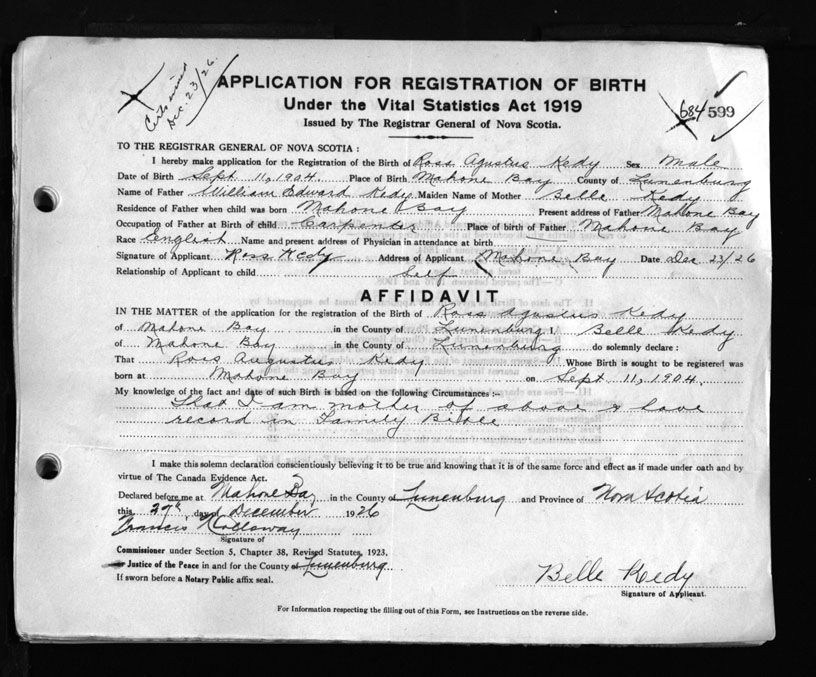 Dec. 23/26.
APPLICATION FOR REGISTRATION OF BIRTH
Under the Vital Statistics Act 1919
684 599
Issued by The Registrar General of Nova Scotia.
TO THE REGISTRAR GENERAL OF NOVA SCOTIA :
I hereby make application for the Registration of the Birth of Ross Agustus Kedy Sex Male
Date of Birth Sept 11, 1904 Place of Birth Mahone Bay County of Lunenburg
Name of Father William Edward Kedy Maiden Name of Mother Belle Kedy
Residence of Father when child was born Mahone Bay Present address of Father Mahone Bay
Occupation of Father at Birth of child Carpenter Place of birth of Father Mahone Bay
Race English Name and present address of Physician in attendance at birth
Signature of Applicant Ross Kedy Address of Applicant Mahone Bay Date Dec 23/26
Relationship of Applicant to child Self
AFFIDAVIT
IN THE MATTER of the application for the registration of the Birth of Ross Agustus Kedy
of Mahone Bay in the County of Lunenburg I, Belle Kedy
of Mahone Bay in the County of Lunenburg do solemnly declare :
That Ross Augustus Kedy Whose Birth is sought to be registered was
born at Mahone Bay on Sept 11, 1904.
My knowledge of the fact and date of such Birth is based on the following Circumstances :—
That I am mother of above & have
record in Family Bible
I make this solemn declaration conscientiously believing it to be true and knowing that it is of the same force and effect as if made under oath and by
virtue of The Canada Evidence Act.
Declared before me at Mahone Bay in the County of Lunenburg and Province of Nova Scotia
this 27th day of December 1926
Francis Holloway
Signature of
Commissioner under Section 5, Chapter 38, Revised Statutes, 1923.
Justice of the Peace in and for the County of Lunenburg
If sworn before a Notary Public affix seal.
Belle Kedy
Signature of Applicant.
For Information respecting the filling out of this Form, see Instructions on the reverse side.